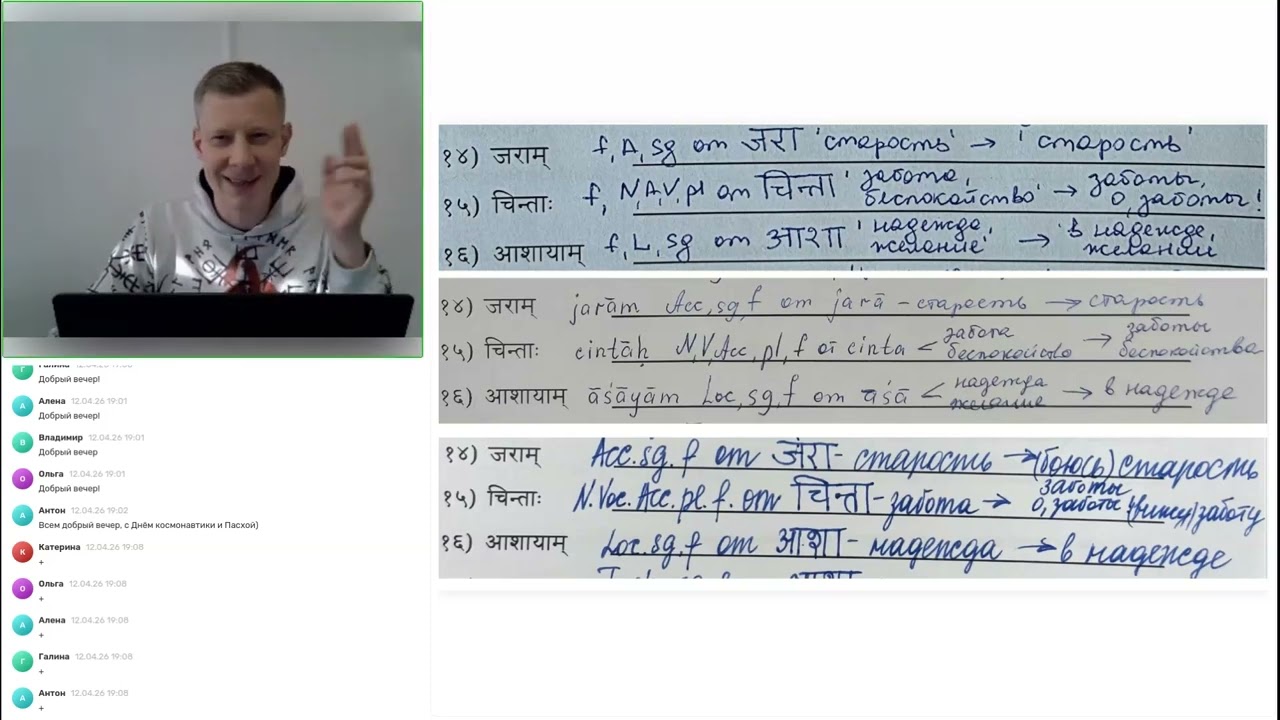 Добрый вечер!
Алена 12.04.26 19:01
Добрый вечер!
Владимир 12.04.26 19:01
Добрый вечер
Ольга 12.04.26 19:01
Добрый вечер!
Антон 12.04.26 19:02
Всем добрый вечер, с Днём космонавтики и Пасхой)
Катерина 12.04.26 19:08
+
Ольга 12.04.26 19:08
+
Алена 12.04.26 19:08
+
Галина 12.04.26 19:08
+
Антон 12.04.26 19:08
+
१४) जराम् f, A, sg от जरा 'старость' → 'старость'
१५) चिन्ताः f, N,A,V, pl от चिन्ता 'забота, беспокойство' → заботы, о, заботы!
१६) आशायाम् f, L, sg от आशा 'надежда, желание' → 'в надежде, желании'
१४) जराम् jarām Acc, sg, f от jarā - старость → старость
१५) चिन्ताः cintāḥ N,V,Acc, pl, f от cinta < забота беспокойство → заботы беспокойства
१६) आशायाम् āśāyām Loc, sg, f от āśā < надежда желание → в надежде
१४) जराम् Acc. sg. f от जरा - старость → (боюсь) старость
१५) चिन्ताः N. Voc. Acc. pl. f. от चिन्ता - забота → заботы о, заботы (вижу) заботу
१६) आशायाम् Loc. sg. f от आशा - надежда → в надежде